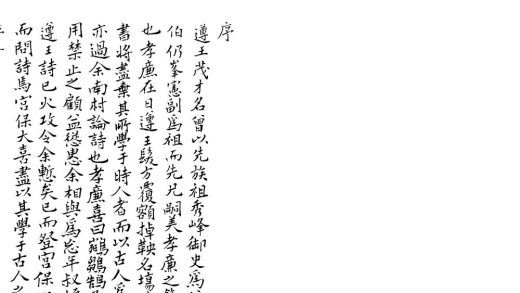 序
遵王茂才名曾以先族祖秀峰御史爲
伯仍峯憲副爲祖而先兄嗣美孝廉之
也孝廉在日遵王髮方覆額掉鞅名場
書將盡棄其所學于時人者而以古人爲
亦過余南村論詩也孝廉喜曰鵷鶵鵠
用禁止之顧益慫恿余相與爲忘年叔
遵王詩已火攻令余慙矣已而登宮保
而問詩焉宮保大喜盡以其學于古人